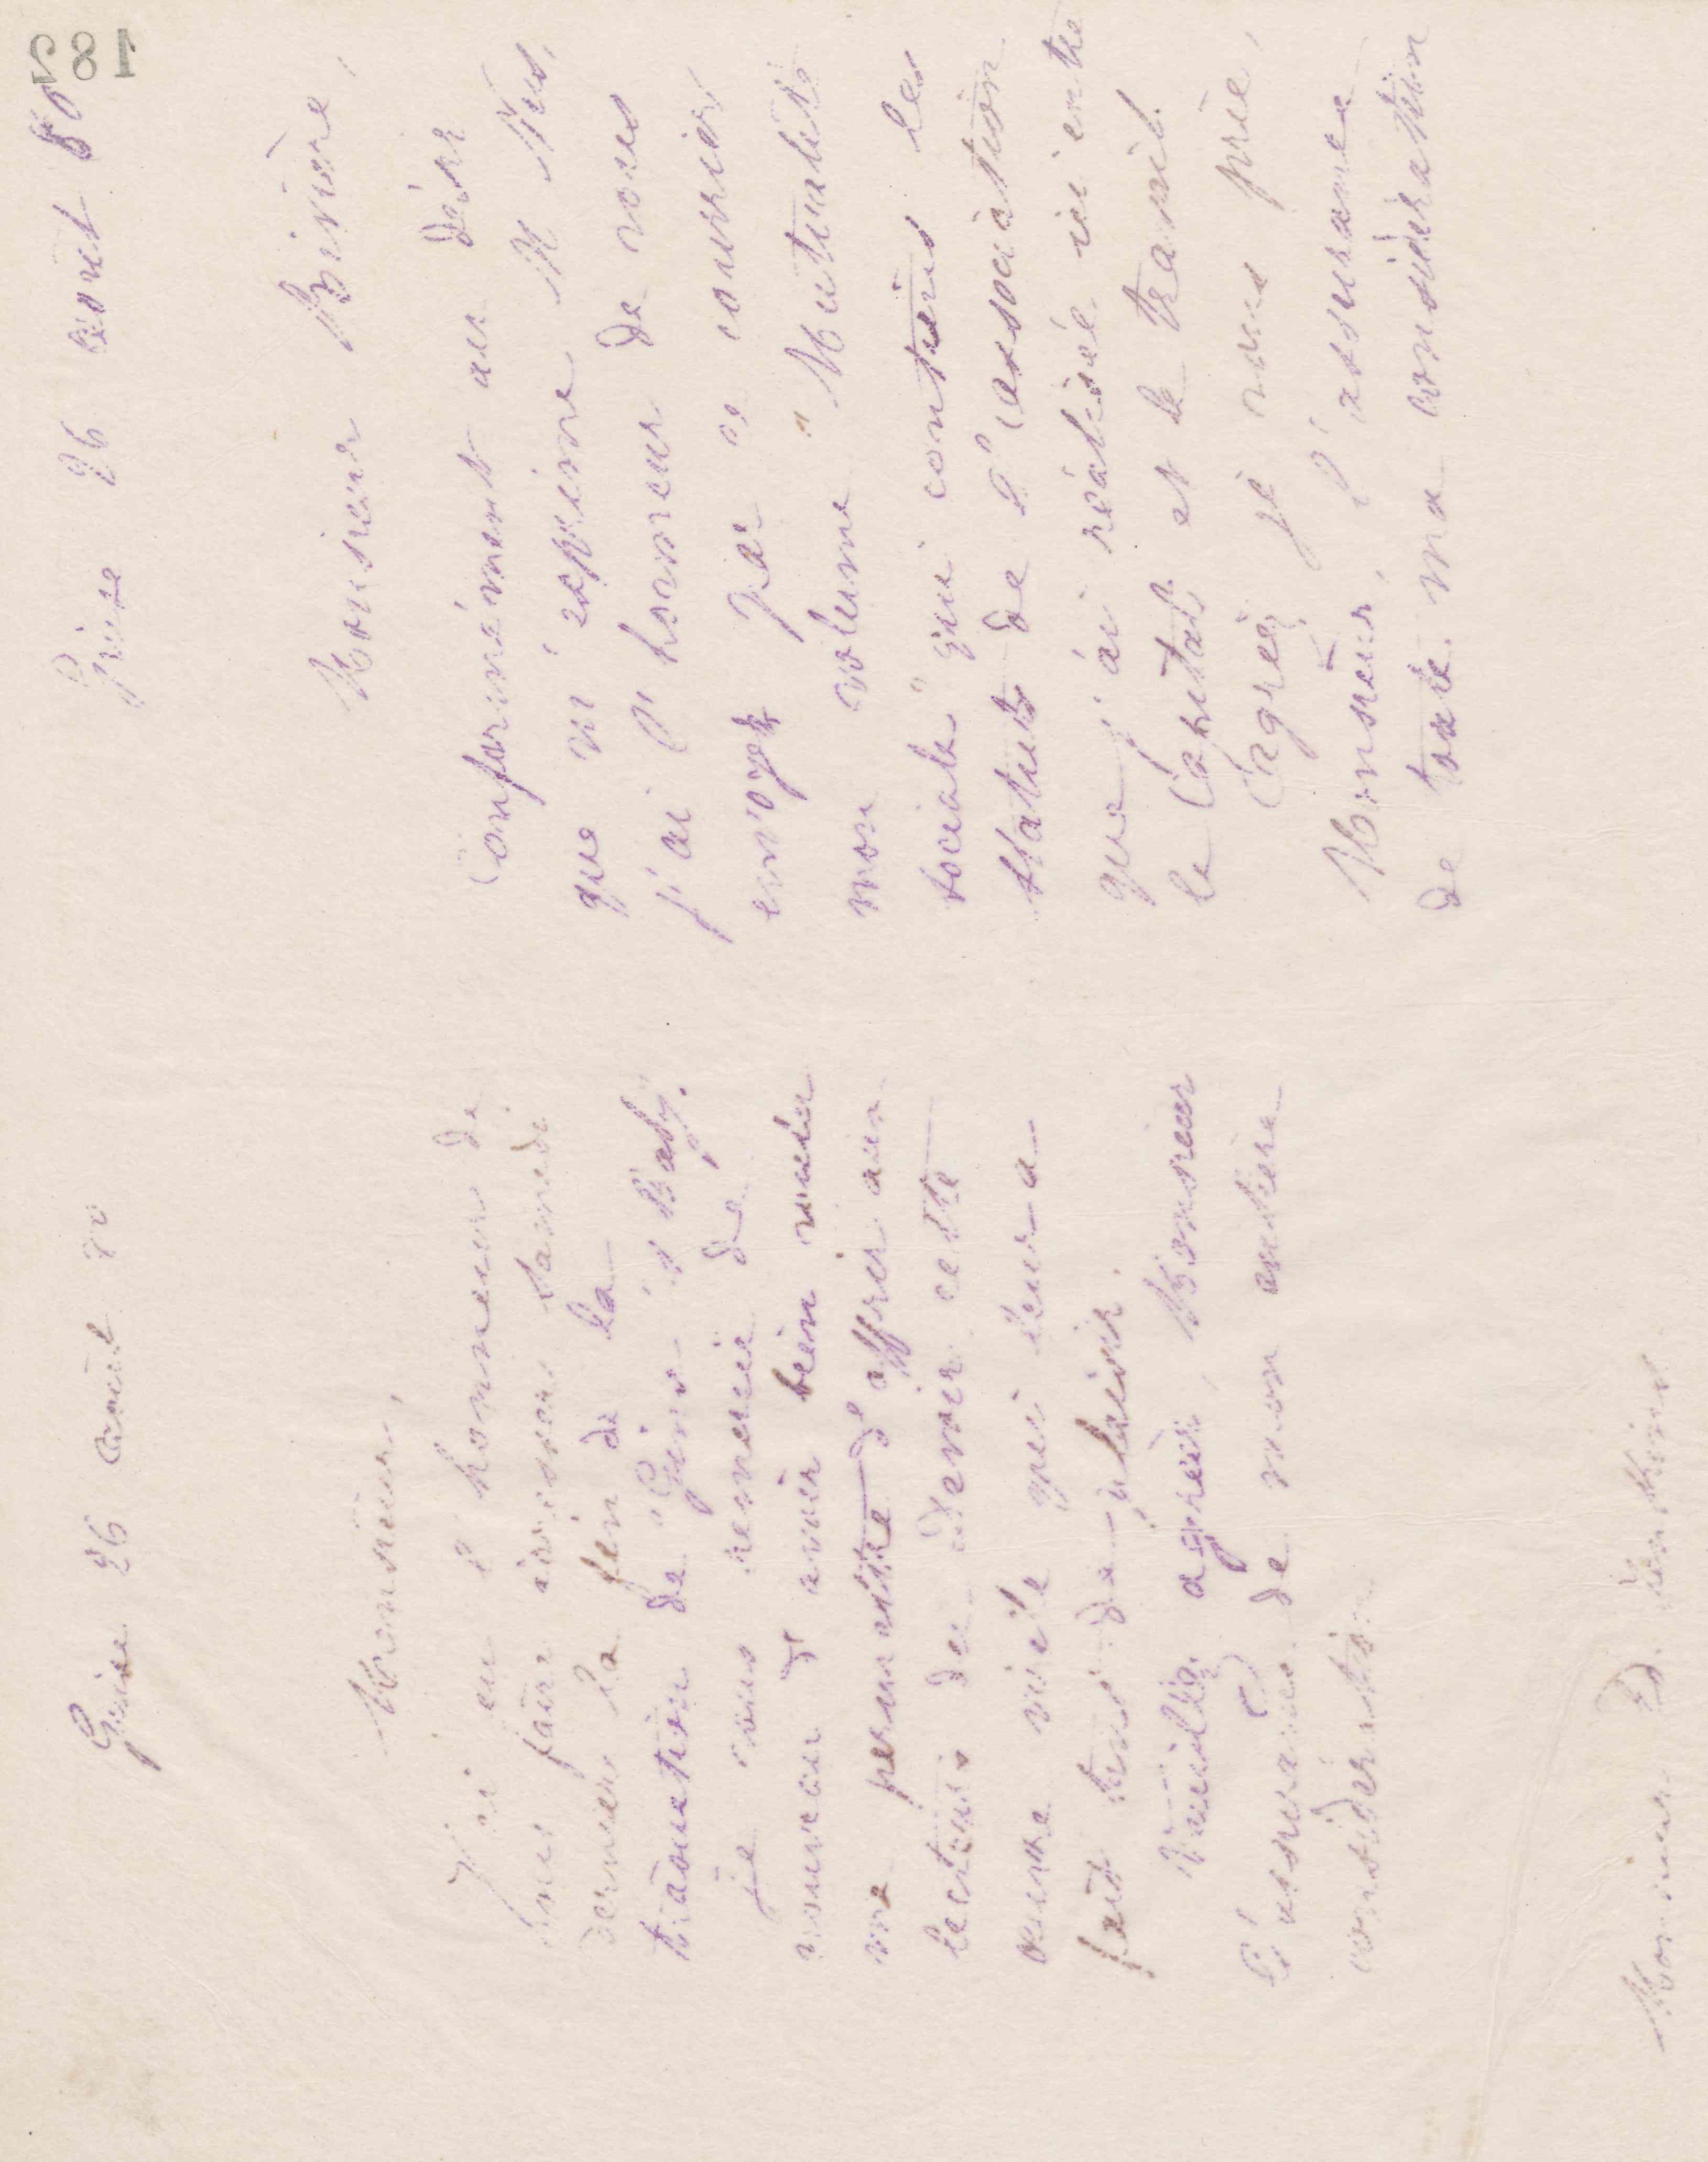 Guise 26 avril 80
Monsieur,
J'ai eu l'honneur de
vous faire adresser samedi
dernier la fin de la
traduction de "Gino's Baby."
je vous remercie de
nouveau d'avoir bien voulu
me permettre d'offrir aux
lecteurs du Devoir cette
œuvre virile qui leur a
fait tant de plaisir.
Veuillez agréer, Monsieur
l'assurance de mon entière
considération
Monsieur D.
182
Guise 26 avril 80
Monsieur Brière,
Conformément au désir
que m'exprime M
j'ai l'honneur de vous
envoyer par ce courrier
mon volume "Mutualité
sociale" qui contient les
statuts de l'association
que j'ai réalisée ici entre
le Capital et le travail.
Agréez, je vous prie,
Monsieur, l'assurance
de toute ma considération